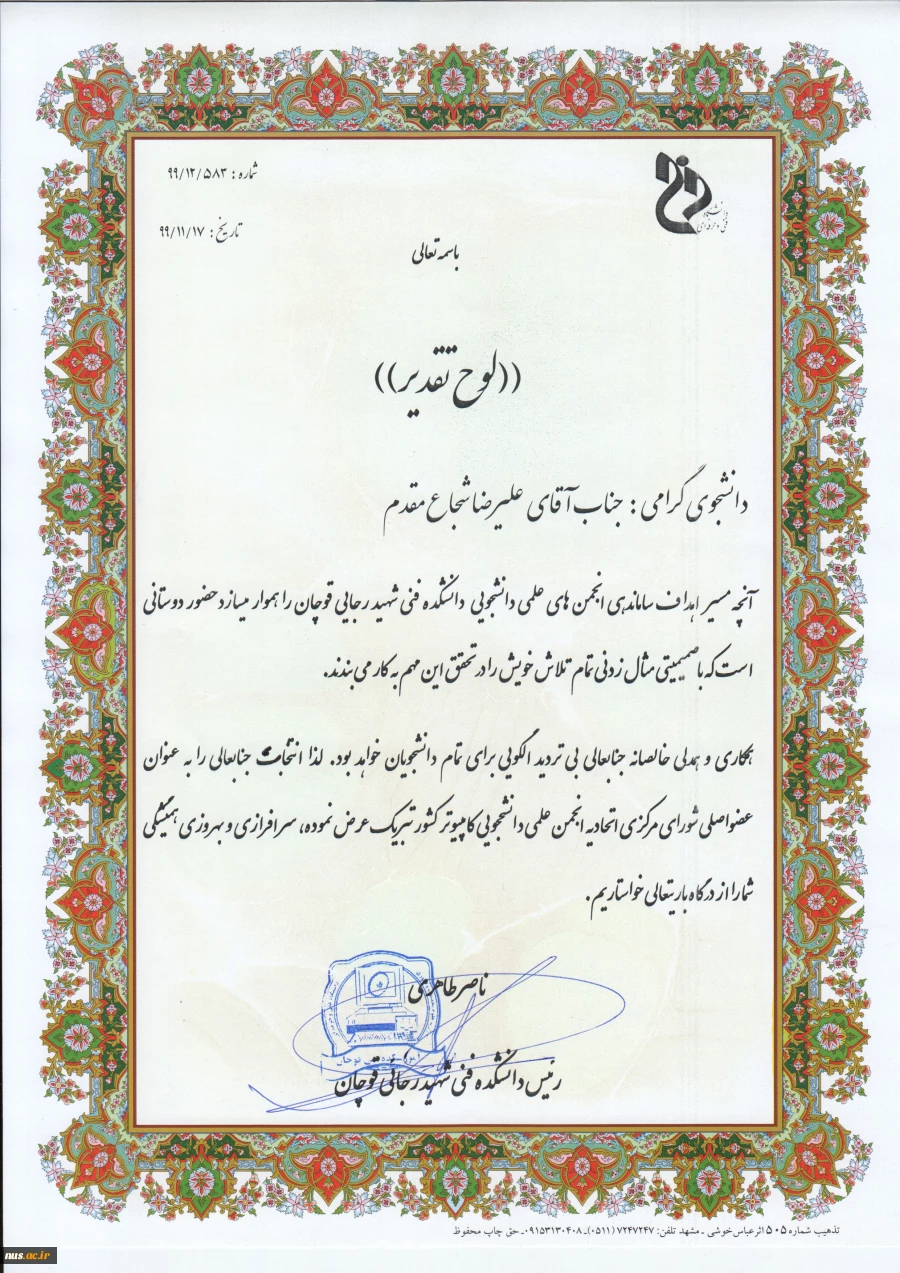 شماره: ۹۹/۱۲/۵۸۳
دانشگاه
فنی و حرفه‌ای
تاریخ: ۹۹/۱۱/۱۷
باسمه تعالی
((لوح تقدیر))
دانشجوی گرامی: جناب آقای علیرضا شجاع مقدم
آنچه مسیر اهداف ساماندهی انجمن های علمی دانشجویی دانشکده فنی شهید رجایی قوچان را هموار میسازد حضور دوستانی
است که با صمیمیتی مثال زدنی تمام تلاش خویش را در تحقق این مهم به کار می بندند.
همکاری و همدلی خالصانه جنابعالی بی تردید الگویی برای تمام دانشجویان خواهد بود. لذا انتخاب جنابعالی را به عنوان
عضو اصلی شورای مرکزی اتحادیه انجمن علمی دانشجویی کامپیوتر کشور تبریک عرض نموده، سرافرازی و بهروزی همیشگی
شما را از درگاه باریتعالی خواستاریم.
ناصر طاهری
رئیس دانشکده فنی شهید رجائی قوچان
تذهیب شماره ۵۰۵ اثر عباس خوشی - مشهد تلفن: ۷۲۴۷۲۴۷ (۰۵۱۱) - ۰۹۱۵۳۱۳۰۴۰۸ - حق چاپ محفوظ
nus.ac.ir